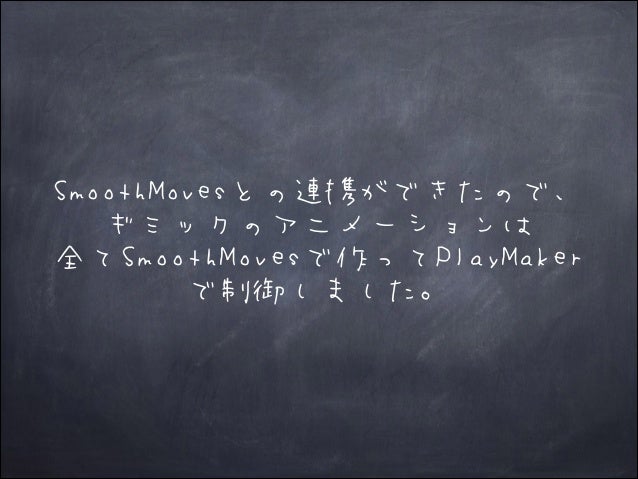 SmoothMovesとの連携ができたので、
ギミックのアニメーションは
全てSmoothMovesで作ってPlayMaker
で制御しました。